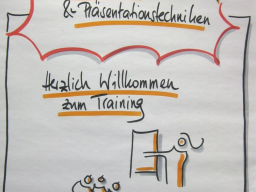 & Präsentationstechniken
Herzlich Willkommen
zum Training